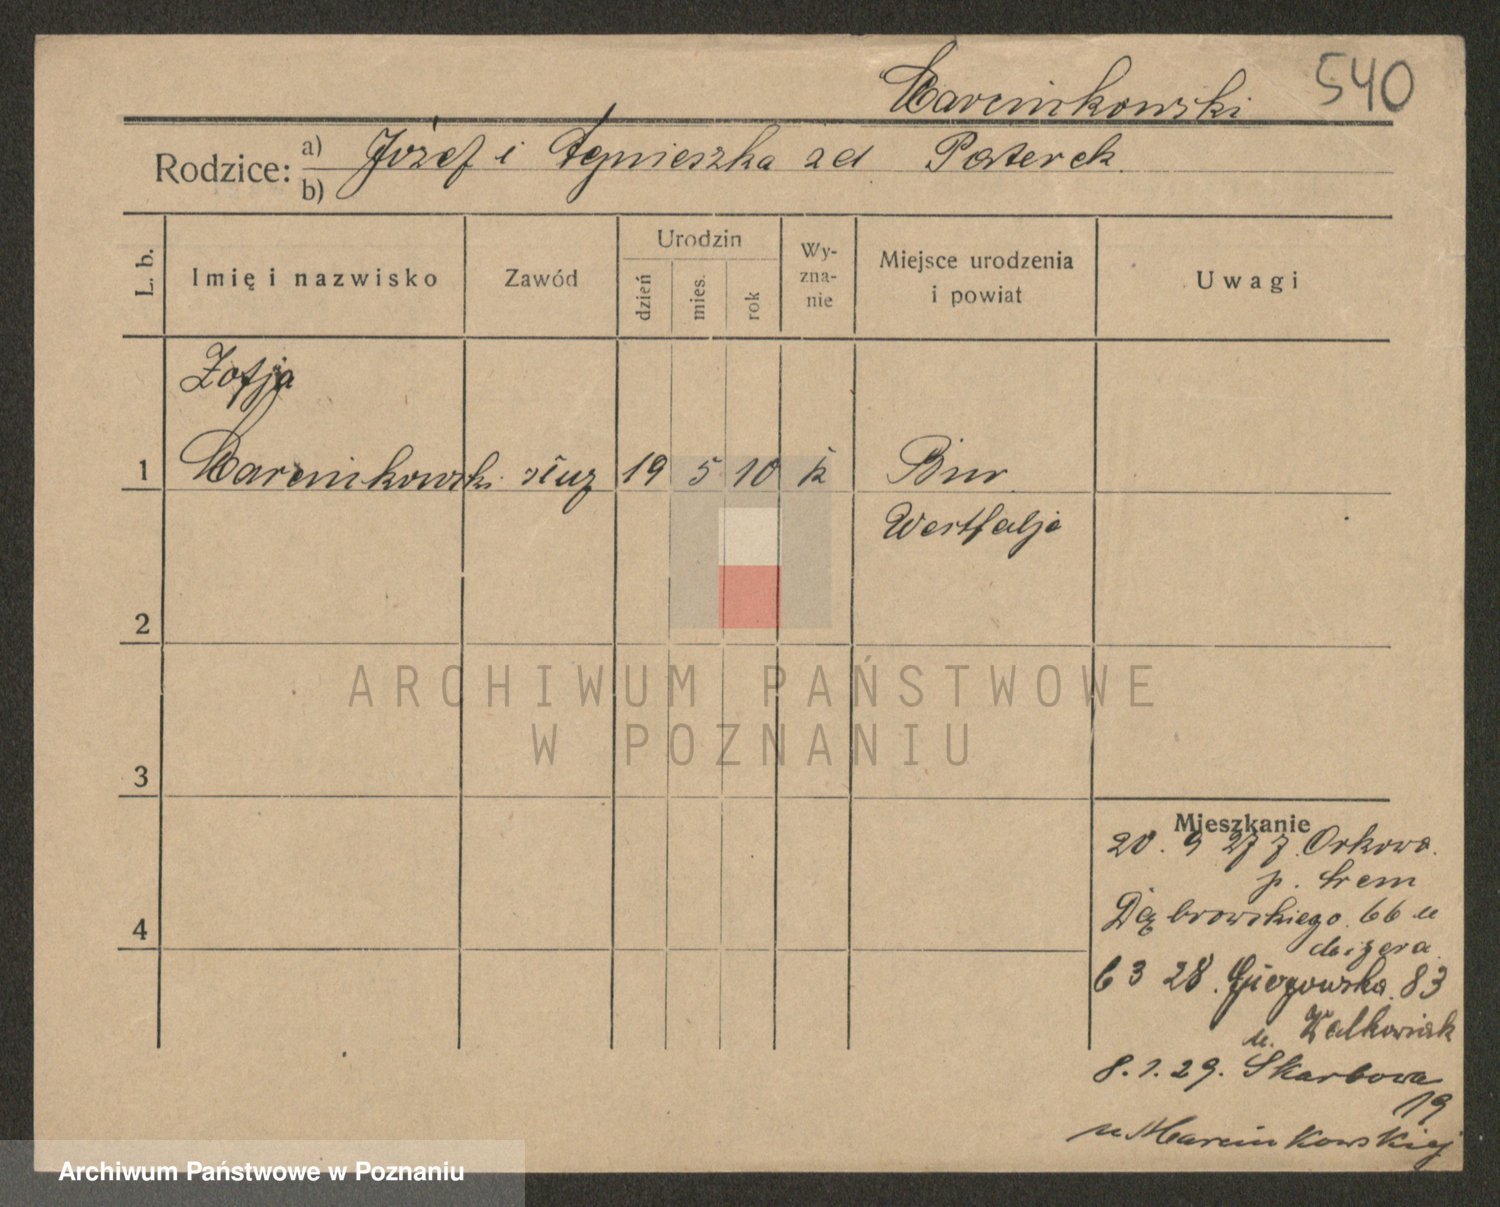 Marcinkowski 540
Rodzice: a) Józef i Agnieszka zd Paterek
b)
L. b. Imię i nazwisko Zawód Urodzin dzień mies. rok Wy-zna-nie Miejsce urodzenia i powiat Uwagi
Zofja
1 Marcinkowski służ 19 5 10 k Bur
Westfalja
2
ARCHIWUM PAŃSTWOWE
W POZNANIU
3
Mieszkanie
20. 9 27 z Orkowa
p. Śrem
4 Dąbrowskiego 66 u
6 3 28. 83
u.
8.1.29. Skarbowa
19
u Marcinkowskiej
Archiwum Państwowe w Poznaniu